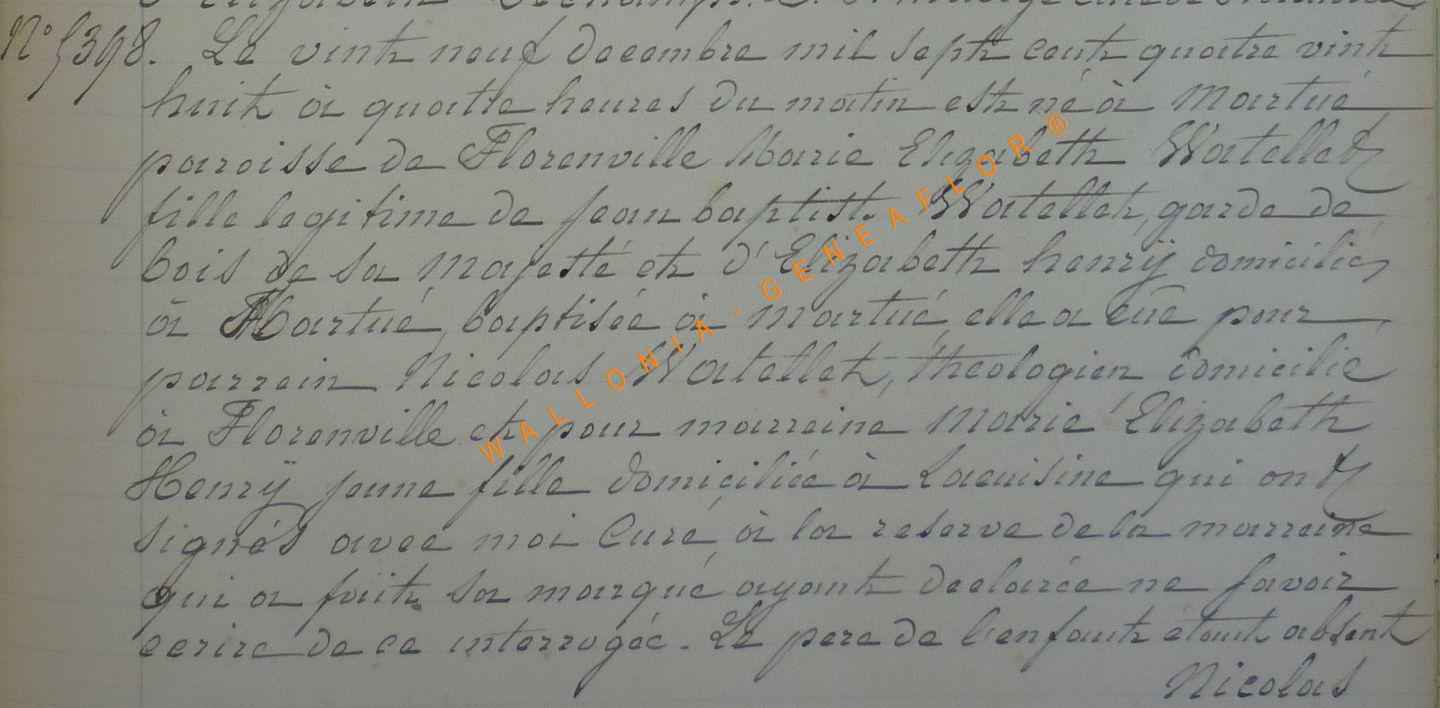 N° 5398. Le vint neuf decembre mil sept cent quatre vint
huit à quatre heures du matin est né à Martué
paroisse de Florenville Marie Elizabeth Watellet
fille legitime de jean baptist. Watellet, garde de
bois de sa Majesté et d'Elizabeth henrÿ domiciliés
à Martué, baptisée à Martué, elle a eue pour
parrein Nicolas Watellet, theologien domicilié
à Florenville et pour marreine Marie Elizabeth
Henrÿ jeune fille domiciliée à Lacuisine qui ont
signés avec moi Curé, à la reserve de la marreine
qui a fait sa marque, ayant declarée ne savoir
ecrire de ce interrogée. Le pere de l'enfant etant absent
Nicolas
WALLONIA-GENEAFLOR®